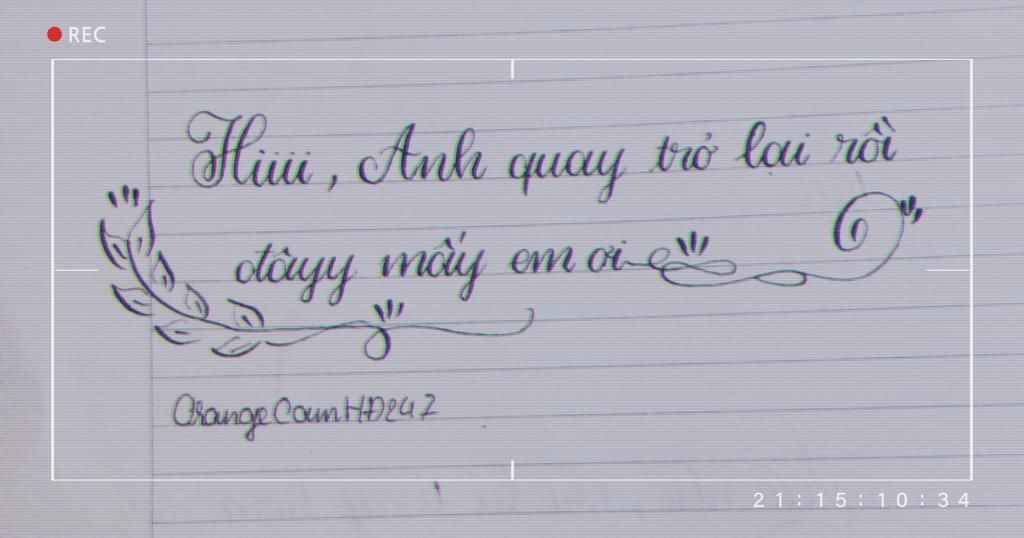 REC
Hiiii, Anh quay trở lại rồi
đâyy mấy em ơi
OrangeCamHD247
21:15:10:34